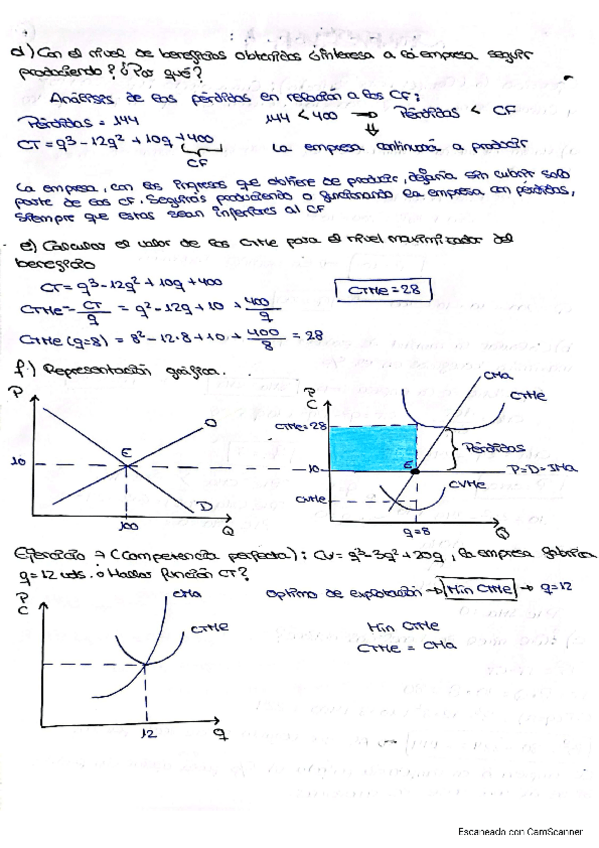 d) Con el nivel de beneficios obtenidos ¿interesa a la empresa seguir
produciendo? ¿Por qué?
Análisis de las pérdidas en relación a los CF:
Pérdidas = 144 144 < 400 → Pérdidas < CF
CT = q³ - 12q² + 10q + 400 ⇓
CF La empresa continuará a producir
La empresa, con los ingresos que obtiene de producir, dejaría sin cubrir solo
parte de los CF. Seguirá produciendo o funcionando la empresa con pérdidas,
siempre que estas sean inferiores al CF
e) Calcular el valor de los CTMe para el nivel maximizador del
beneficio
CT = q³ - 12q² + 10q + 400 CTMe = 28
CTMe = CT/q = q² - 12q + 10 + 400/q
CTMe (q=8) = 8² - 12·8 + 10 + 400/8 = 28
f.) Representación gráfica.
P O E 10 D 100 Q
P C CMa CTMe CTMe = 28 Pérdidas 10 E P=D=IMa CVMe CVMe q=8 Q
Ejercicio 7 (Competencia perfecta): CV = q³ - 3q² + 20q, la empresa fabrica
q = 12 uds. ¿Hallar función CT?
P C CMa CTMe 12 q
Optimo de explotación → Min CTMe → q=12
Min CTMe
CTMe = CMa
Escaneado con CamScanner